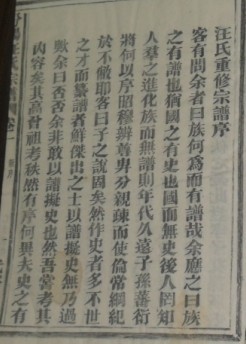 汪氏重修宗譜序
客有問余者曰族何爲而有譜哉余應之曰族
之有譜也猶國之有史也國而無史後人罔知
人羣之進化族而無譜則年代久遠子孫蕃衍
將何以序昭穆辨尊卑分親疎而使倫常綱紀
於不敝耶客曰子之說固矣然作史者多不世
之才而纂譜者鮮傑出之士以譜擬史無乃過
歟余曰否否余非敢以譜擬史也然吾嘗考其
內容矣其高曾祖考秩然有序何異夫史之有
汪氏宗譜